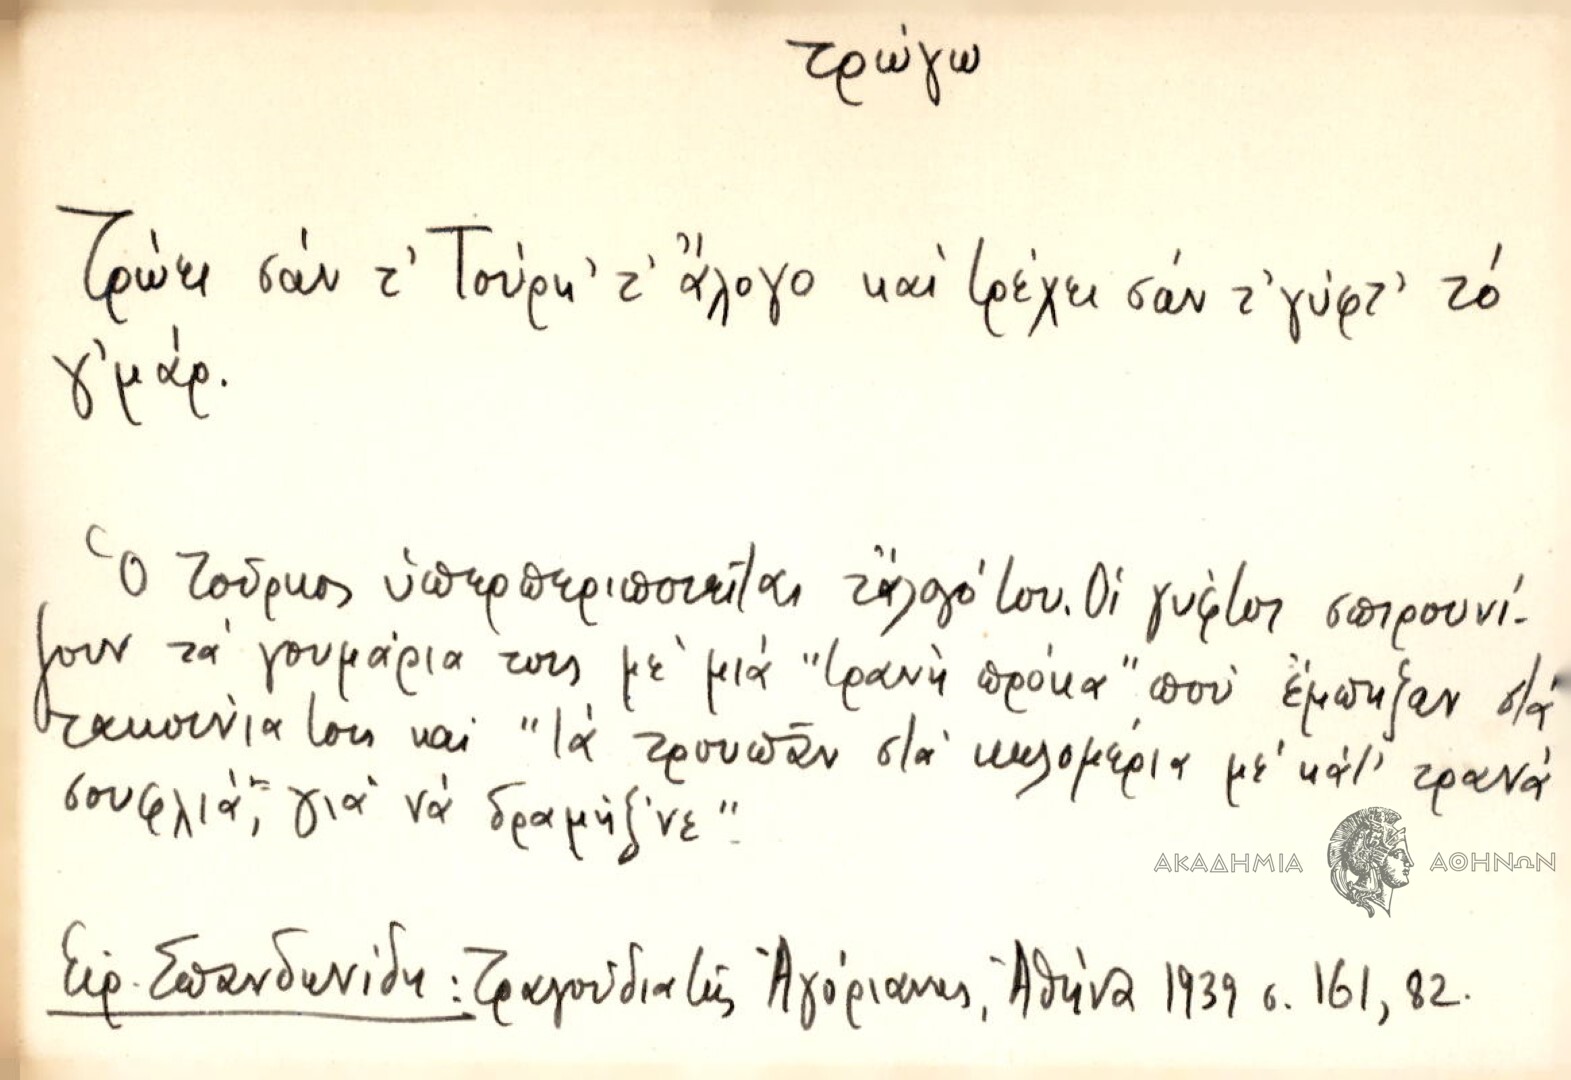 τρώγω
Τρώει σάν τ' Τούρκ' τ' ἄλογο καί τρέχει σάν τ' γύφτ' τό
γ'μάρ.
Ὁ Τοῦρκος ὑπερπεριποιεῖται τἄλογό του. Οἱ γύφτοι σπιρουνί-
ζουν τά γουμάρια τους μέ μιά "τρανή πρόκα" πού ἔμπηξαν στά
τακούνια τους καί "τά τρουπᾶν στά κωλομέρια μέ κάτ' τρανά
σουφλιά, γιά νά δραμήξ'νε".
Εἰρ. Σπανδωνίδη: Τραγούδια τῆς Ἀγόριανης, Ἀθήνα 1939 σ. 161, 82.
ΑΚΑΔΗΜΙΑ ΑΘΗΝΩΝ